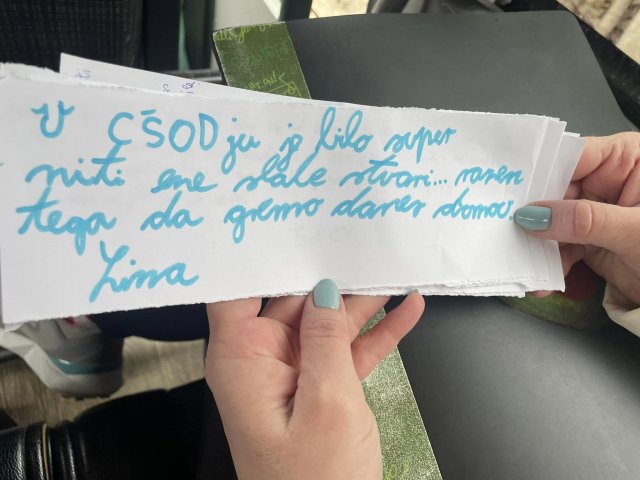 V CŠOD ju je bilo super
niti ene slabe stvari... razen
tega da gremo danes domov